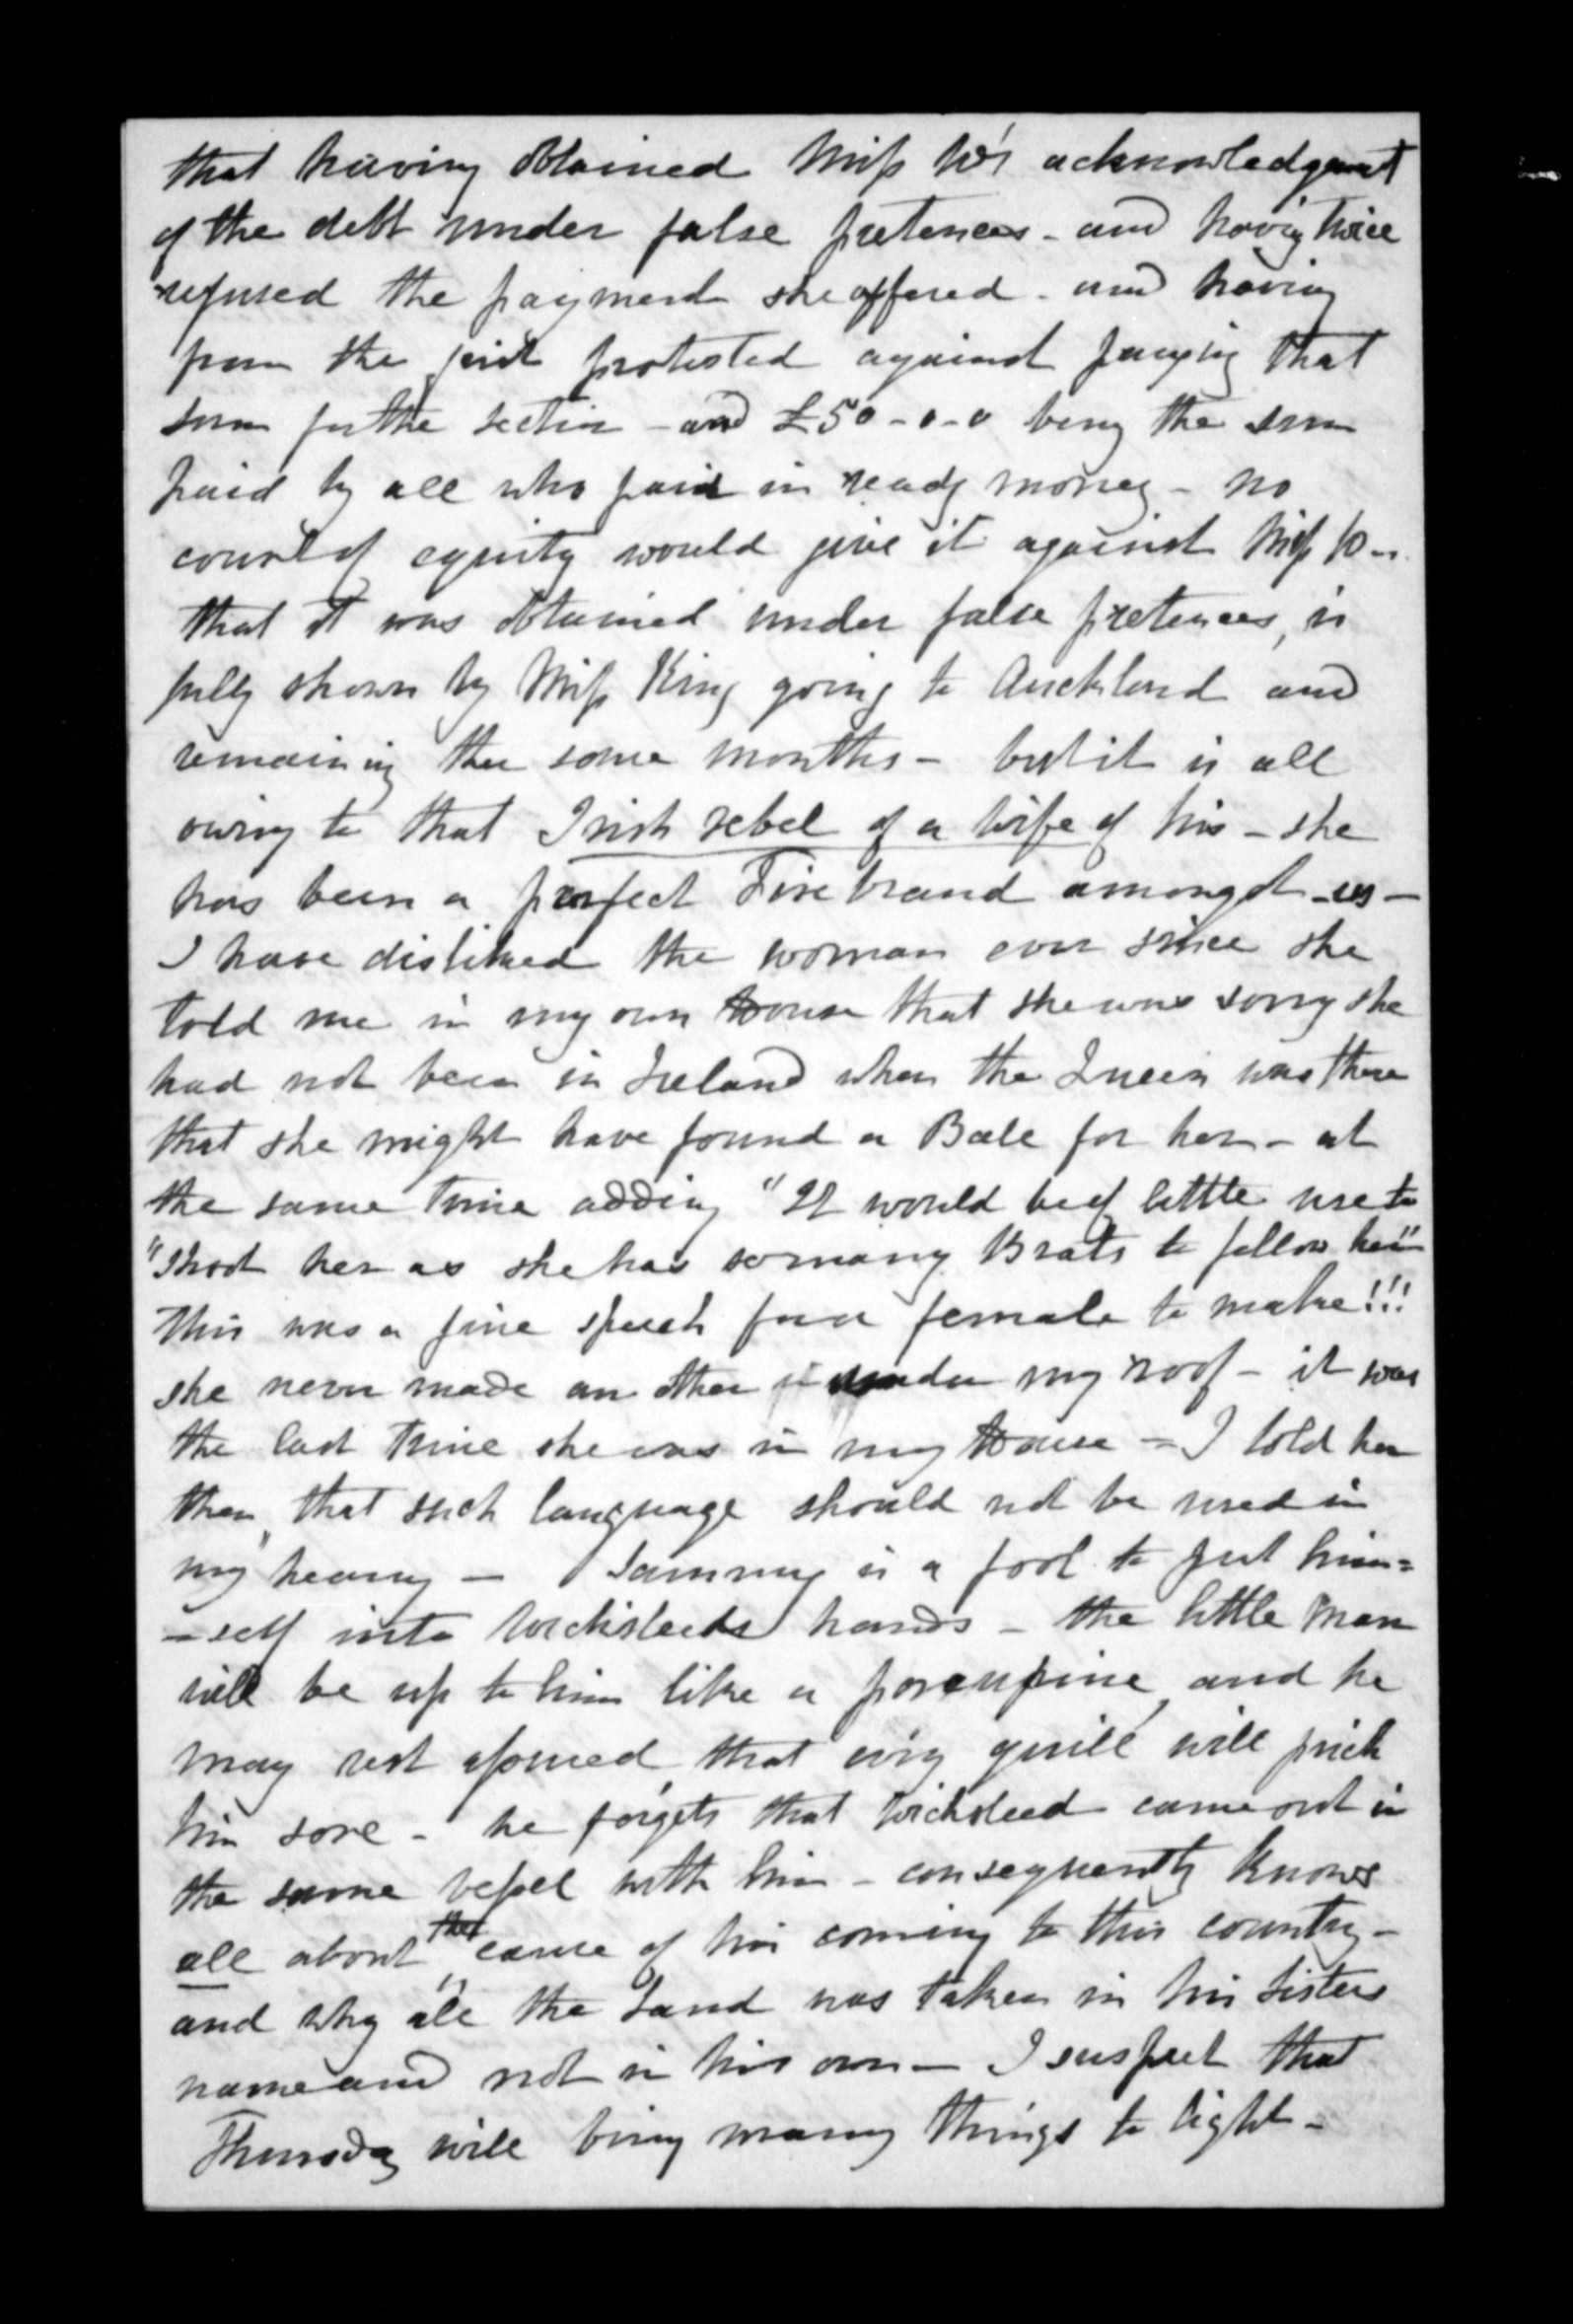 that having obtained Miss K's acknowledgment
of the debt under false pretences - and having twice
refused the payment she offered - and having
from the first protested against paying that
sum for the section - and £50-0-0 being the sum
paid by all who paid in ready money - no
court of equity would give it against Miss K -
that it was obtained under false pretences, is
fully shown by Miss King going to Auckland and
remaining there some months - but it is all
owing to that Irish rebel of a wife of his - she
has been a perfect Fire brand amongst us -
I have disliked the woman ever since she
told me in my own House that she was sorry she
had not been in Ireland when the Queen was there
that she might have found a Ball for her - at
the same time adding "It would be of little use to
"shoot her as she has so many Brats to follow her"
This was a fine speech for a female to make!!!
she never made an other under my roof - it was
the last time she was in my House - I told her
then, that such language should not be used in
my hearing - Sammy is a fool to put him=
-self into Wicksteeds hands - the little man
will be up to him like a porcupine, and he
may rest assured, that ev'ry quill will prick
him sore - he forgets that Wicksteed came out in
the same vessel with him - consequently knows
all about the cause of his coming to this country -
and why all the Land was taken in his Sisters
name and not in his own - I suspect that
Thursday will bring many things to light -